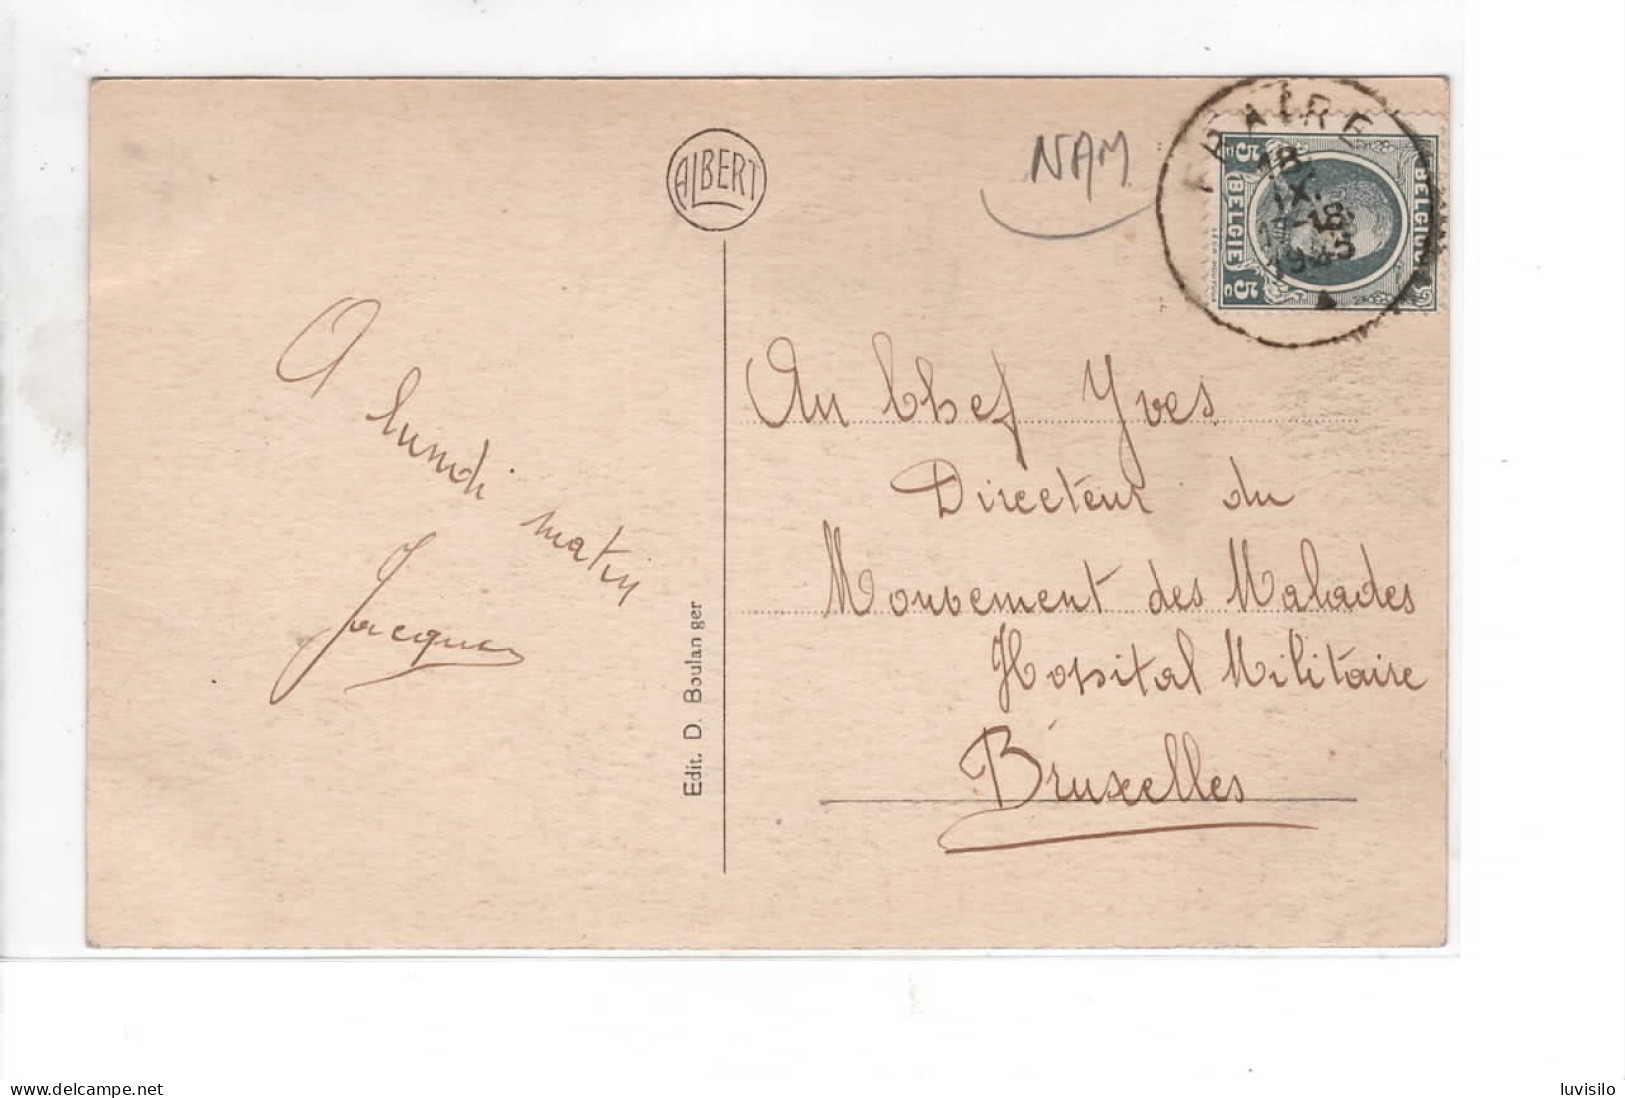 ALBERT
NAM
FRAIRE
18
IX
18
BELGIE
BELGIQUE
5 C
5 C
A lundi matin
Jacques
Au Chef Yves
Directeur du
Mouvement des Malades
Hopital Militaire
Bruxelles
Edit. D. Boulanger
www.delcampe.net
luvisilo